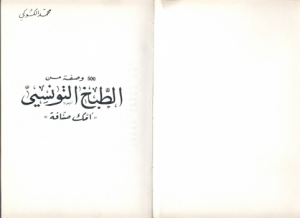 محمد الكسوري
500 وصفة من
الطبخ التونسي
"أفك صنافة"